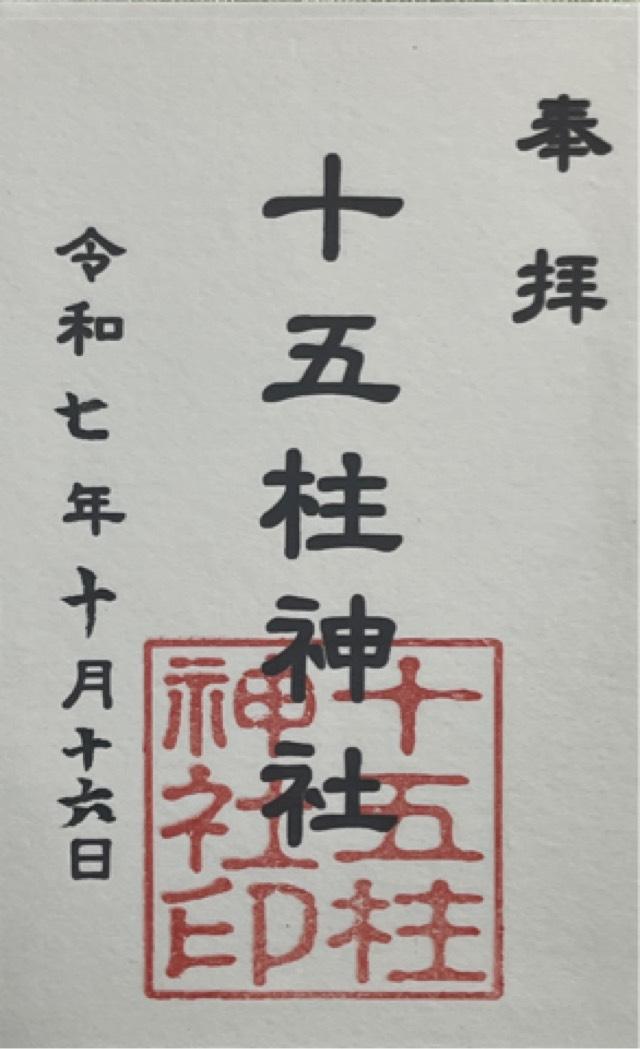 奉拝
十五柱神社
令和七年十月十六日
十五柱
神社印